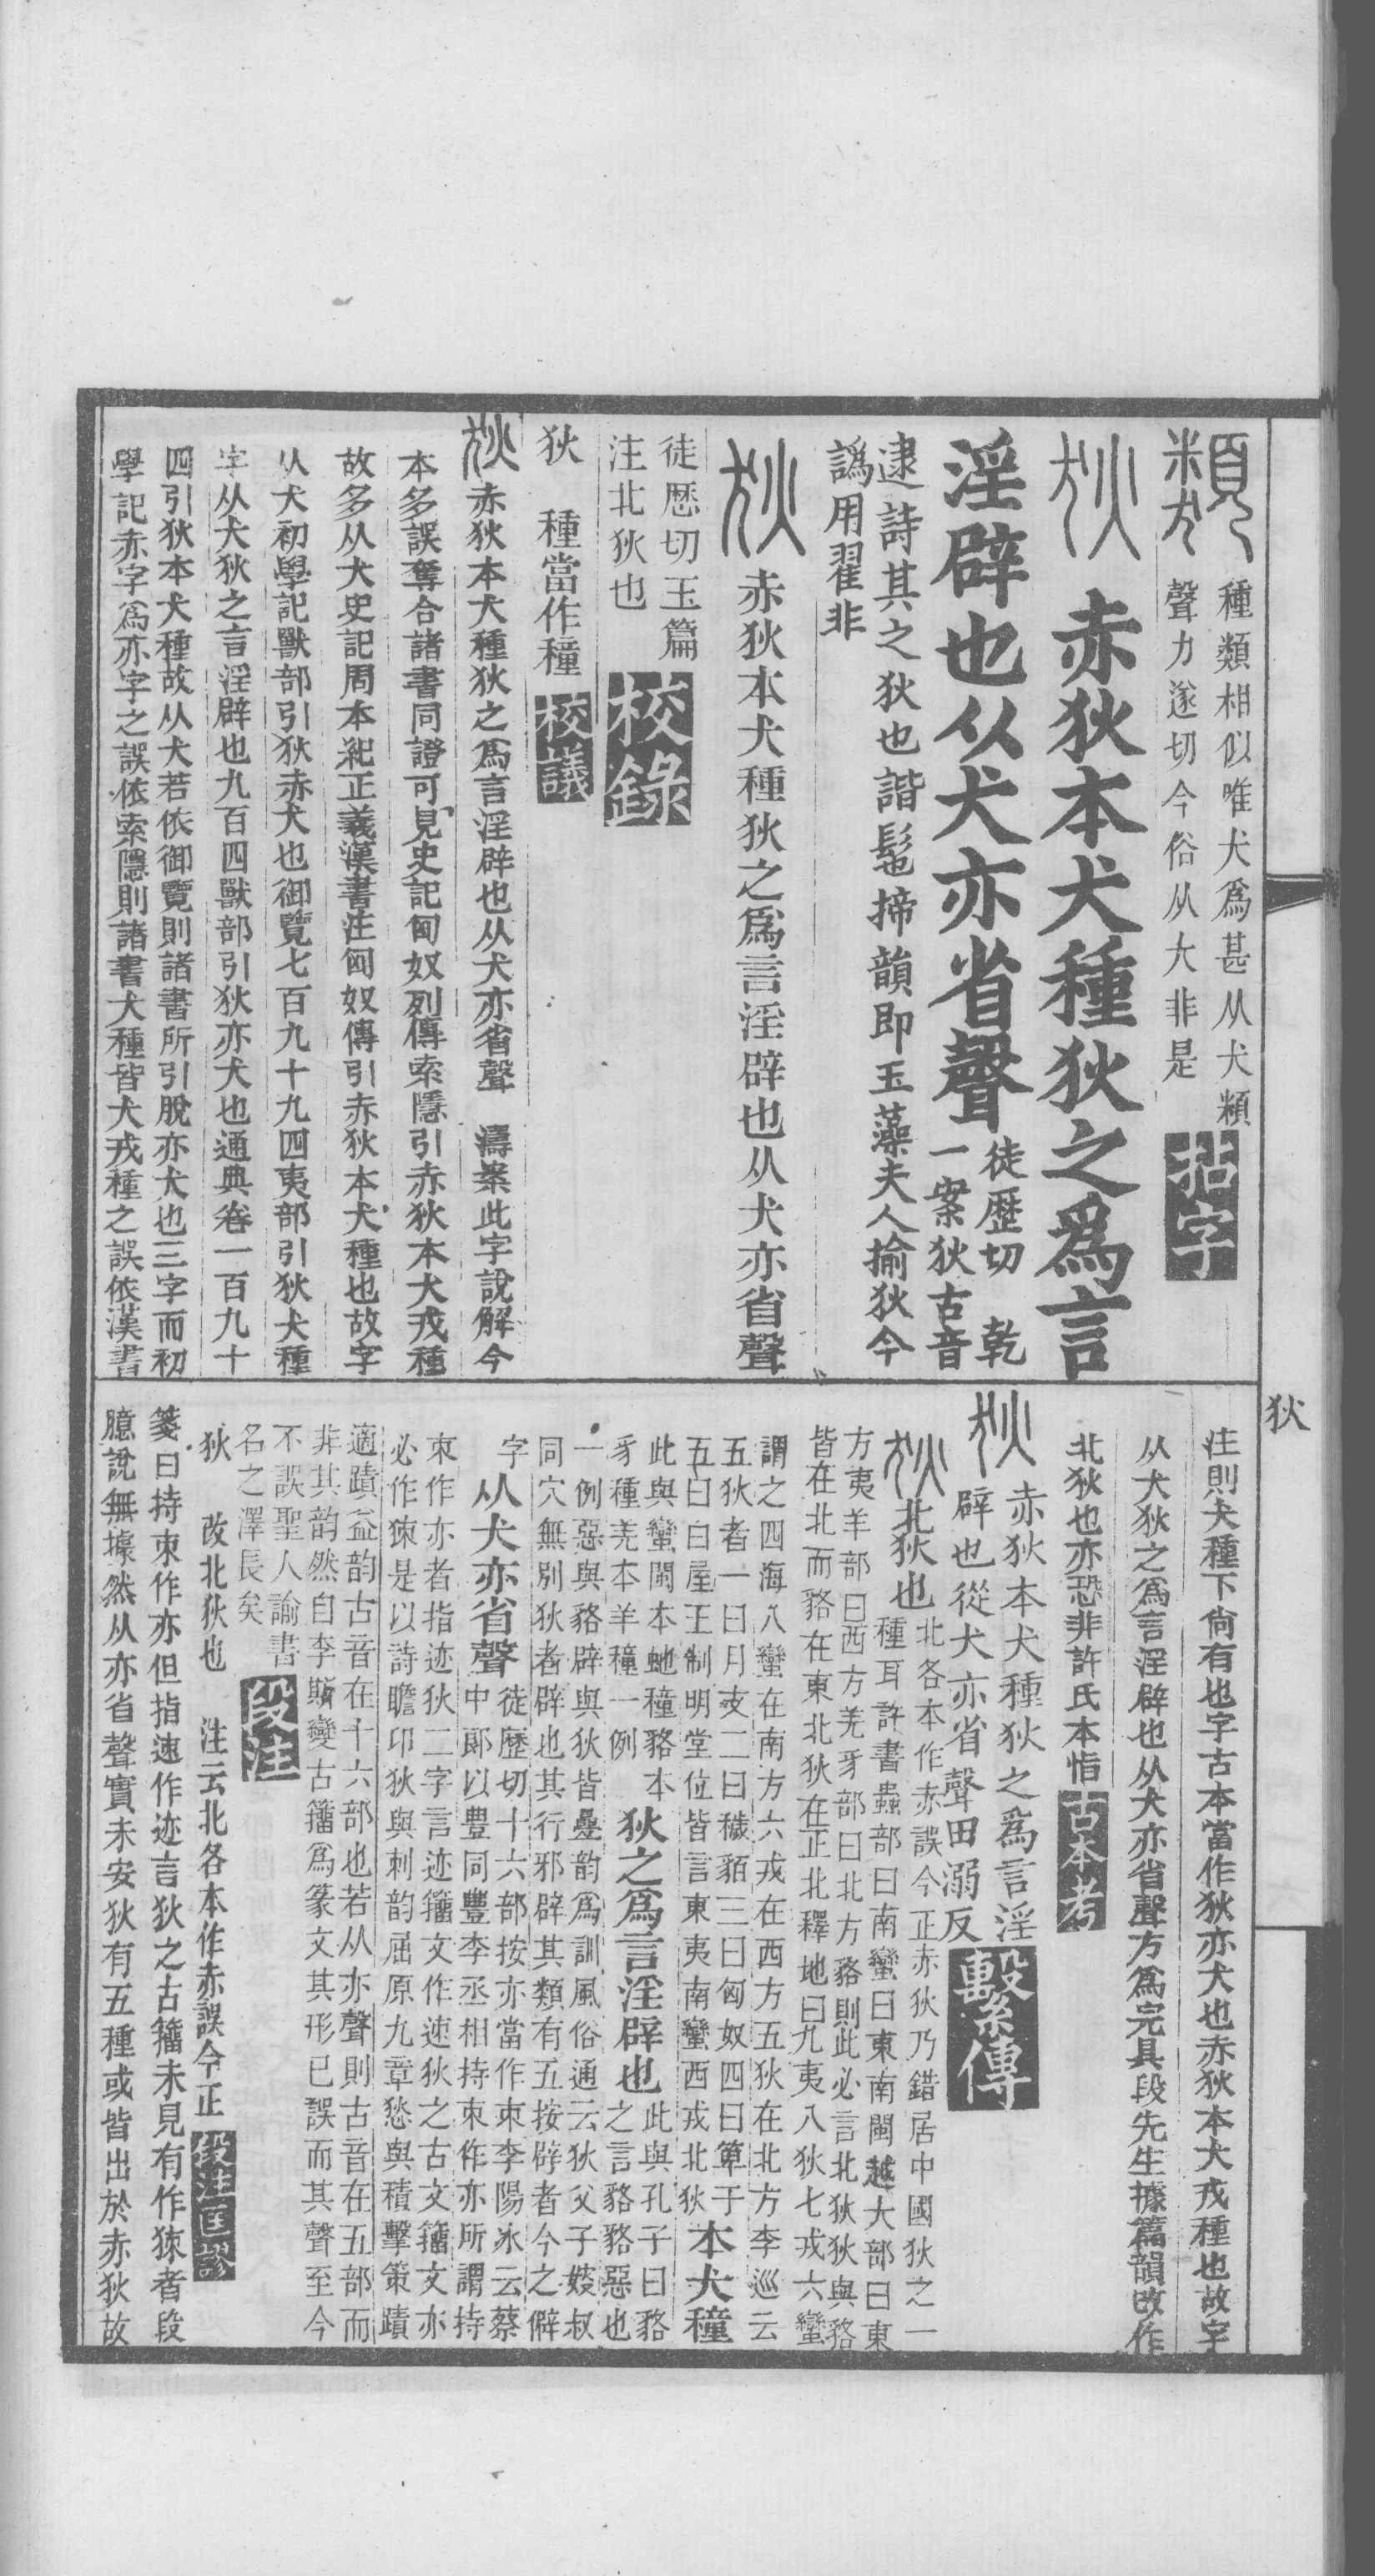 種類相似唯犬爲甚从犬頪
聲力遂切今俗从大非是
拈字
赤狄本犬種狄之爲言
淫辟也从犬亦省聲
徒歴切 乾
一案狄古音
逮詩其之狄也諧髢揥韻即玉藻夫人揄狄今
譌用翟非
赤狄本犬種狄之爲言淫辟也从犬亦省聲
徒厯切玉篇
注北狄也
校錄
狄 種當作穜
校議
赤狄本犬種狄之爲言淫辟也从犬亦省聲 濤案此字說解今
本多誤奪合諸書同證可見史記匈奴列傳索隱引赤狄本犬戎種
故多从犬史記周本紀正義漢書注匈奴傳引赤狄本犬種也故字
从犬初學記獸部引狄赤犬也御覽七百九十九四夷部引狄犬種
字从犬狄之言淫辟也九百四獸部引狄亦犬也通典卷一百九十
四引狄本犬種故从犬若依御覽則諸書所引脫亦犬也三字而初
學記赤字爲亦字之誤依索隱則諸書犬種皆犬戎種之誤依漢書
狄
注則犬種下尙有也字古本當作狄亦犬也赤狄本犬戎種也故字
从犬狄之爲言淫辟也从犬亦省聲方爲完具段先生據篇韻改作
北狄也亦恐非許氏本恉
古本考
赤狄本犬種狄之爲言淫
辟也從犬亦省聲田溺反
繫傳
北狄也
北各本作赤誤今正赤狄乃錯居中國狄之一
種耳許書蟲部曰南蠻曰東南閩越大部曰東
方夷羊部曰西方羌豸部曰北方貉則此必言北狄狄與貉
皆在北而貉在東北狄在正北釋地曰九夷八狄七戎六蠻
謂之四海八蠻在南方六戎在西方五狄在北方李巡云
五狄者一曰月支二曰穢貊三曰匈奴四曰箄于
五曰白屋王制明堂位皆言東夷南蠻西戎北狄
本犬穜
此與蠻閩本虵穜貉本
豸種羌本羊穜一例
狄之爲言淫辟也
此與孔子曰貉
之言貉貉惡也
一例惡與貉辟與狄皆疊韵爲訓風俗通云狄父子嫂叔
同穴無別狄者辟也其行邪辟其類有五按辟者今之僻
字
从犬亦省聲
徒歷切十六部按亦當作朿李陽冰云蔡
中郞以豊同豐李丞相持朿作亦所謂持
朿作亦者指迹狄二字言迹籒文作速狄之古文籒文亦
必作㹤是以詩瞻卬狄與刺韵屈原九章愁與積擊策蹟
適蹟益韵古音在十六部也若从亦聲則古音在五部而
非其韵然自李斯變古籒爲篆文其形已誤而其聲至今
不誤聖人諭書
名之澤長矣
段注
狄 改北狄也 注云北各本作赤誤今正
段注匡謬
箋曰持朿作亦但指速作迹言狄之古籒未見有作㹤者段
臆說無據然从亦省聲實未安狄有五種或皆出於赤狄故